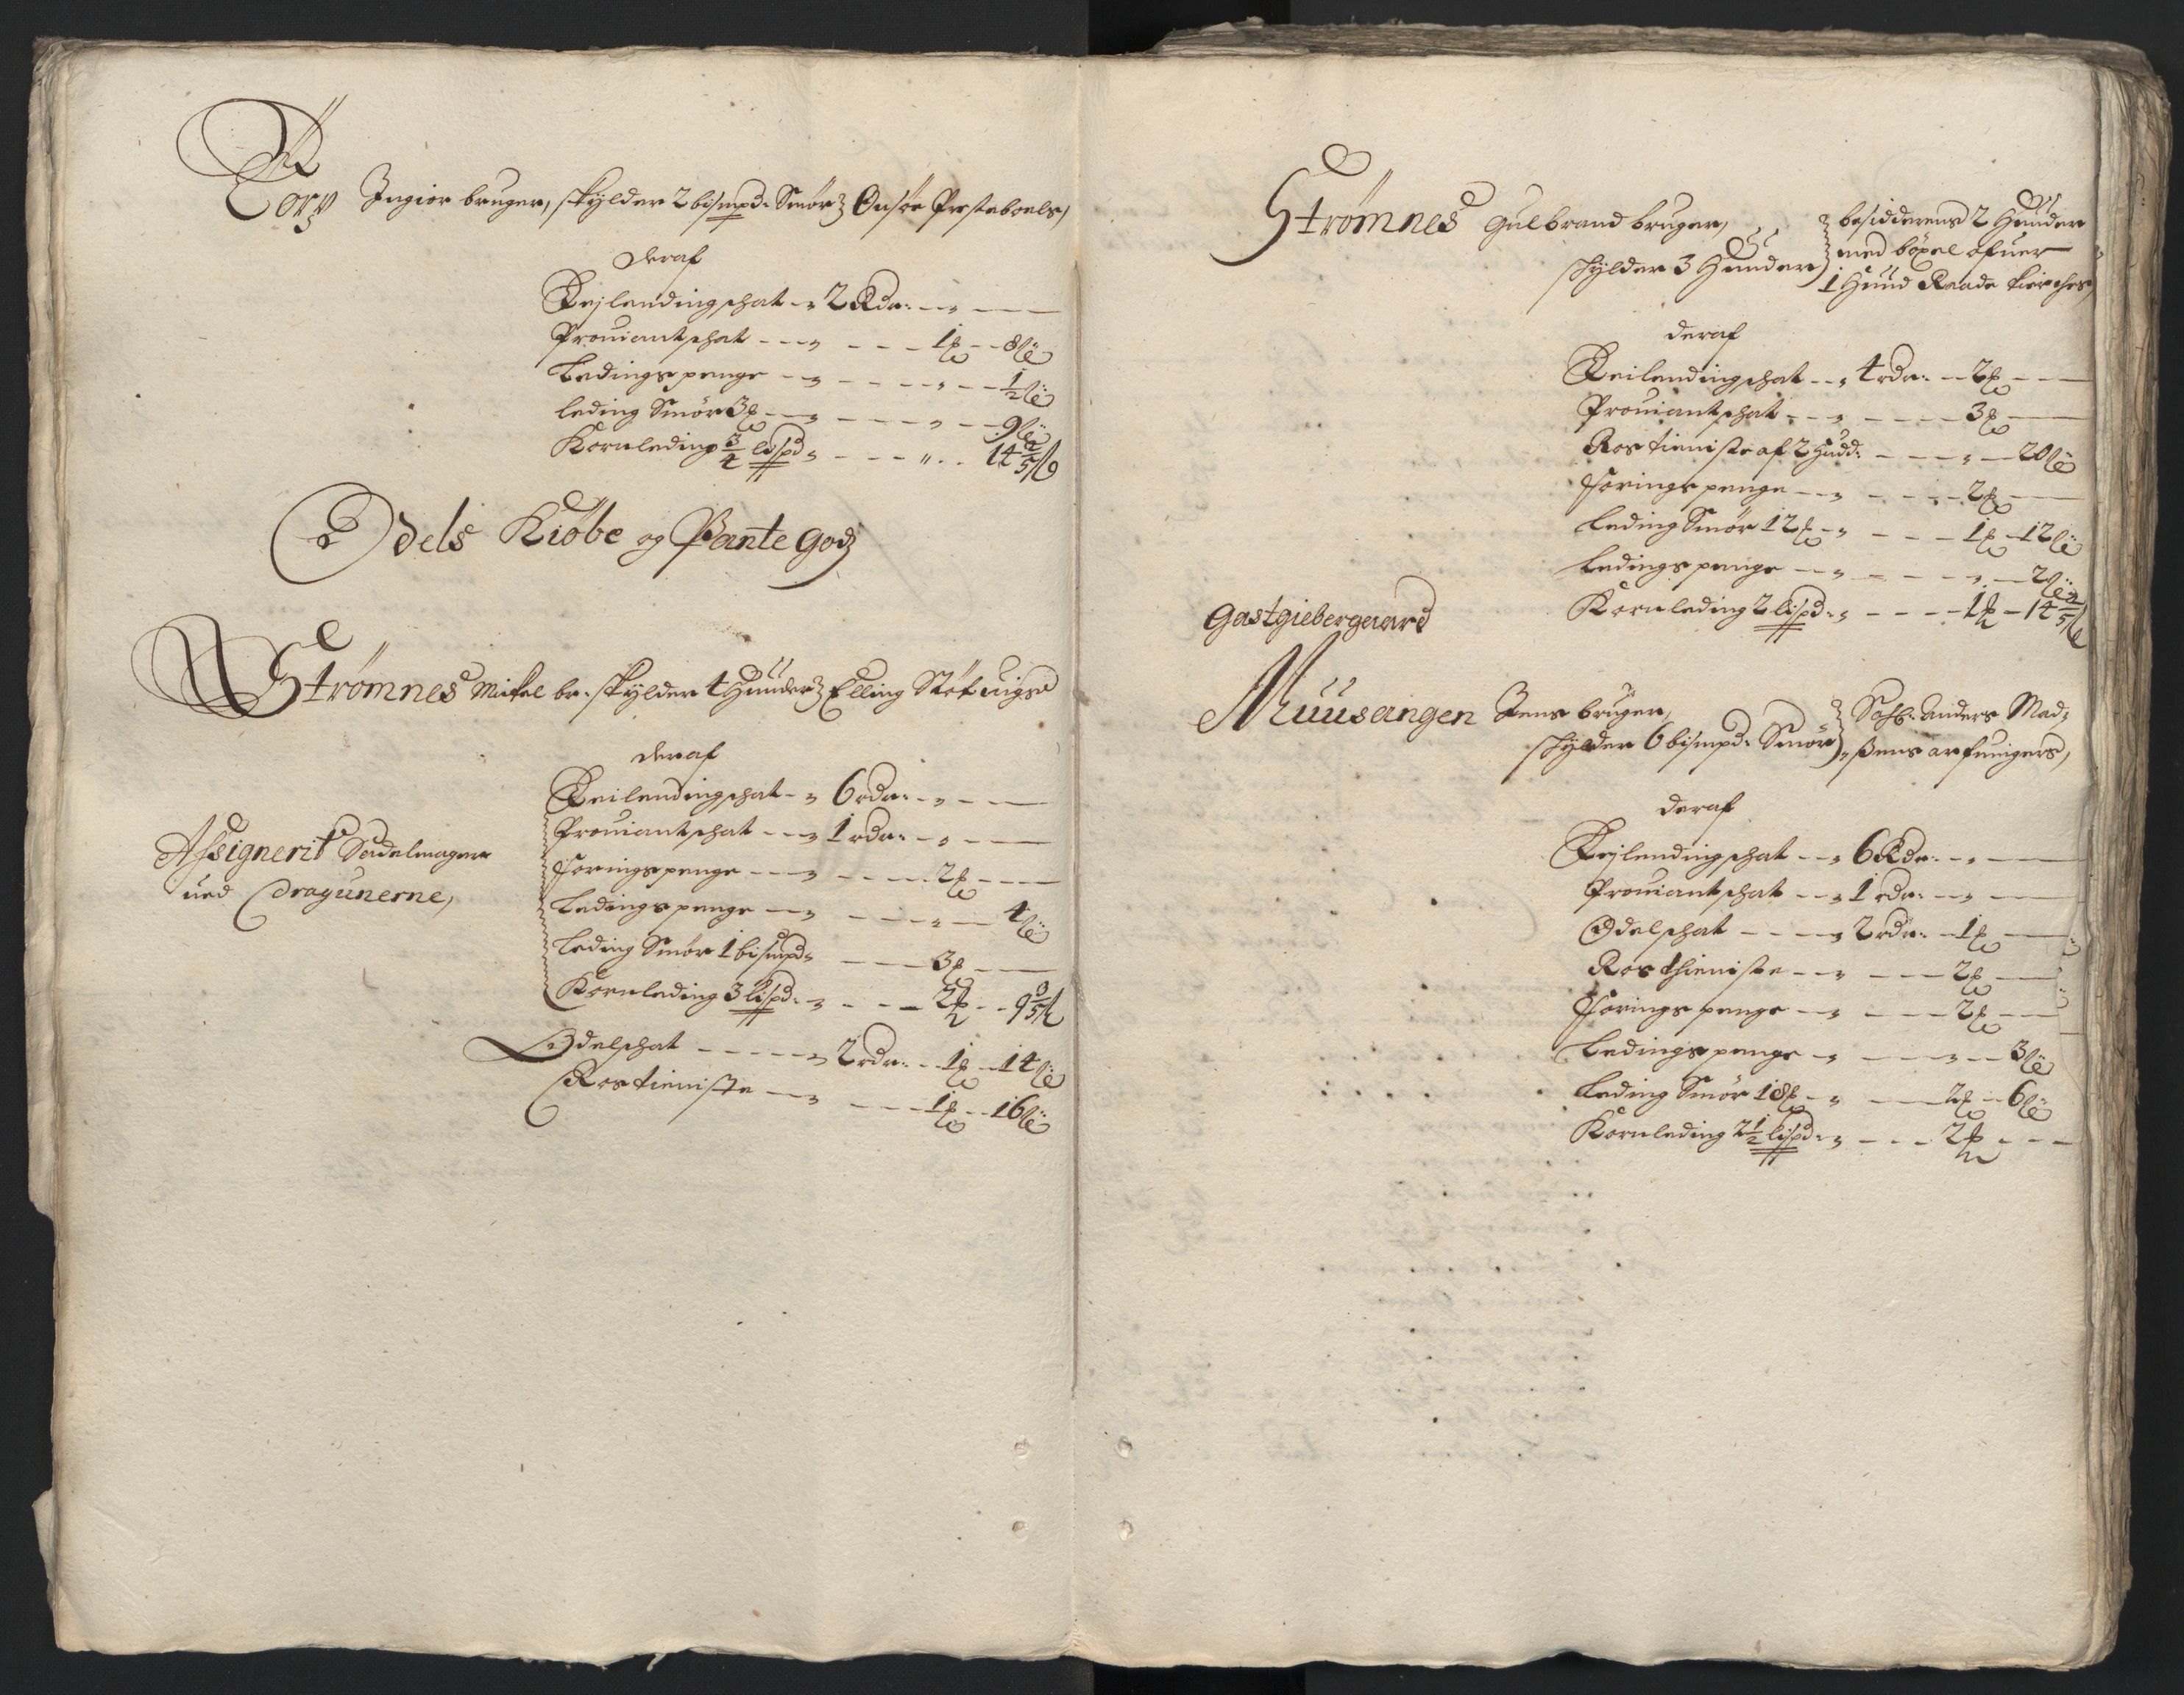 Torp Ingior bruger, skylder 2 bismpd: Smør Onsøe Præsteboels,
deraf
Leylendingschat - 2 Rdr: - -
Prouiantschat - - - 1 ℔ - 8 ß
Ledingspenge - - - - ½ ß
leding Smør 3 ℔ - - - 9 ß
Kornleding ¾ lispd - - - 14 2/5 ß
Odels Kiøbe og Pante godz
Strømnes Mikel br: skylder 4 Hunder Elling Støtuigs
deraf
Leilendingschat - 6 rdr: - -
Prouiantschat - - 1 rdr: - -
Foringspenge - - - 2 ℔ - -
Ledingspenge - - - - 4 ß
leding Smør 1 bismpd - - 3 ℔ - -
Kornleding 3 lispd: - - 2 ℔ - 9 3/5 ß
Assignerit Sadelmageren
ued Dragunerne,
Odelschat - - - 2 rdr: - 1 ℔ - 14 ß
Rostieniste - - - 1 ℔ - 16 ß
Strømnes Gulbrand bruger,
schylder 3 Hunder
besidderens 2 Hunder
med böxel ofuer
1 Hund Raade Kierches,
deraf
Leilendingschat - - 4 rdr: - 2 ℔ - -
Prouiantschat - - - 3 ℔ -
Rostieniste af 2 Hudd: - - - 20 ß
Foringspenge - - - 2 ℔ -
leding Smør 12 ℔ - - - 1 ℔ - 12 ß
Ledingspenge - - - - 2 ß
Kornleding 2 lispd: - - - 1 ℔ - 14 2/5 ß
Gastgiebergaard
Muusangen Jens bruger,
schylder 6 bismpd: Smør
Sahl: Anders Mad-
ßens arfuingers,
deraf
Leylendingschat - - 6 Rdr: - -
Prouiantschat - - 1 rdr: - -
Odelschat - - - 2 rdr: - 1 ℔ -
Rosthieniste - - - 2 ℔ -
Foringspenge - - - 2 ℔ -
Ledingspenge - - - 3 ß
Leding Smør 18 ℔ - - 2 ℔ - 6 ß
Kornleding 2½ lispd: - - - 2 ℔ - -